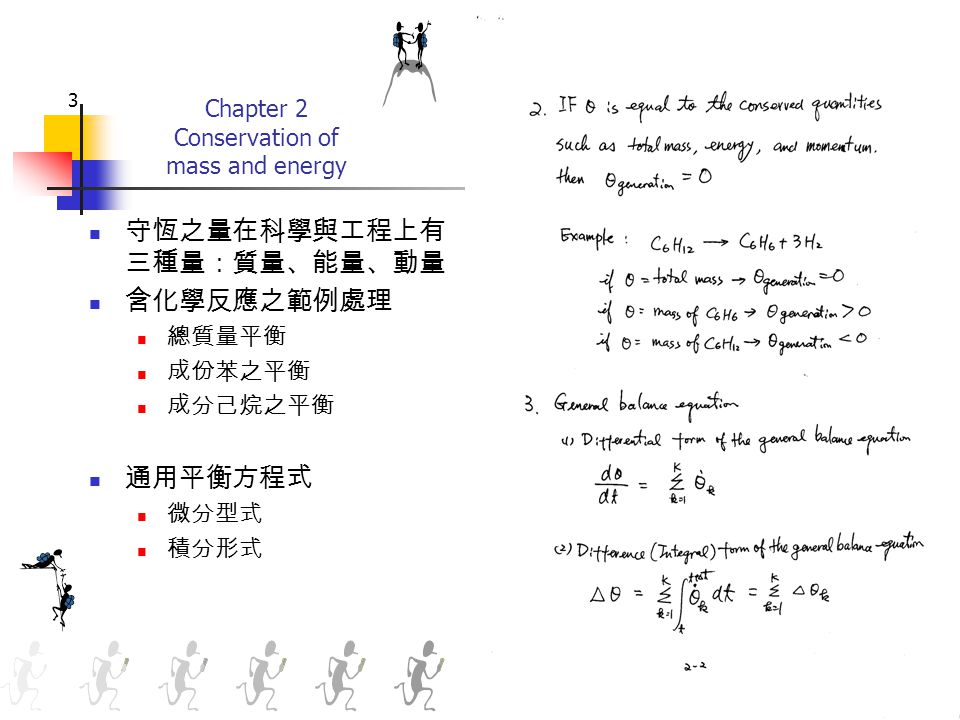 3
Chapter 2
Conservation of
mass and energy
守恆之量在科學與工程上有
三種量：質量、能量、動量
含化學反應之範例處理
總質量平衡
成份苯之平衡
成分己烷之平衡
通用平衡方程式
微分型式
積分形式
2. IF θ is equal to the conserved quantities
such as total mass, energy, and momentum.
then θgeneration = 0
Example : C6H12 → C6H6 + 3H2
if θ = total mass → θgeneration = 0
if θ = mass of C6H6 → θgeneration > 0
if θ = mass of C6H12 → θgeneration < 0
3. General balance equation
(1) Differential form of the general balance equation
dθ/dt = Σ_{k=1}^{K} θ̇k
(2) Difference (Integral) form of the general balance equation
Δθ = Σ_{k=1}^{K} ∫_{t}^{t+Δt} θ̇k dt = Σ_{k=1}^{K} Δθk
2-2